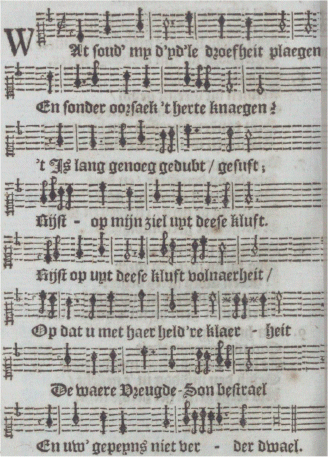 WAt soud' my d'yd'le droefheit plaegen
En sonder oorsaek 't herte knaegen?
't Is lang genoeg gedubt / gesuft;
Rijst - op mijn ziel uyt deese kluft.
Rijst op uyt deese kluft volnaerheit /
Op dat u met haer held're klaer - heit
De waere Vreugde-Son bestrael
En uw' gepeyns niet ver - der dwael.